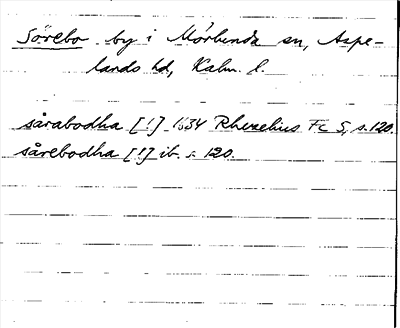 Sörebo by i Mörlunda sn, Aspe-
lands hd, Kalm. l.
sårabodha [!] 1634 Rhezelius Fc 5, s. 120.
sårebodha [!] ib. s. 120.